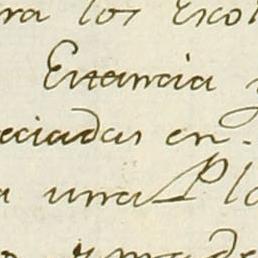 ra los Esco
Estancia
eciadas en-
a una Pla